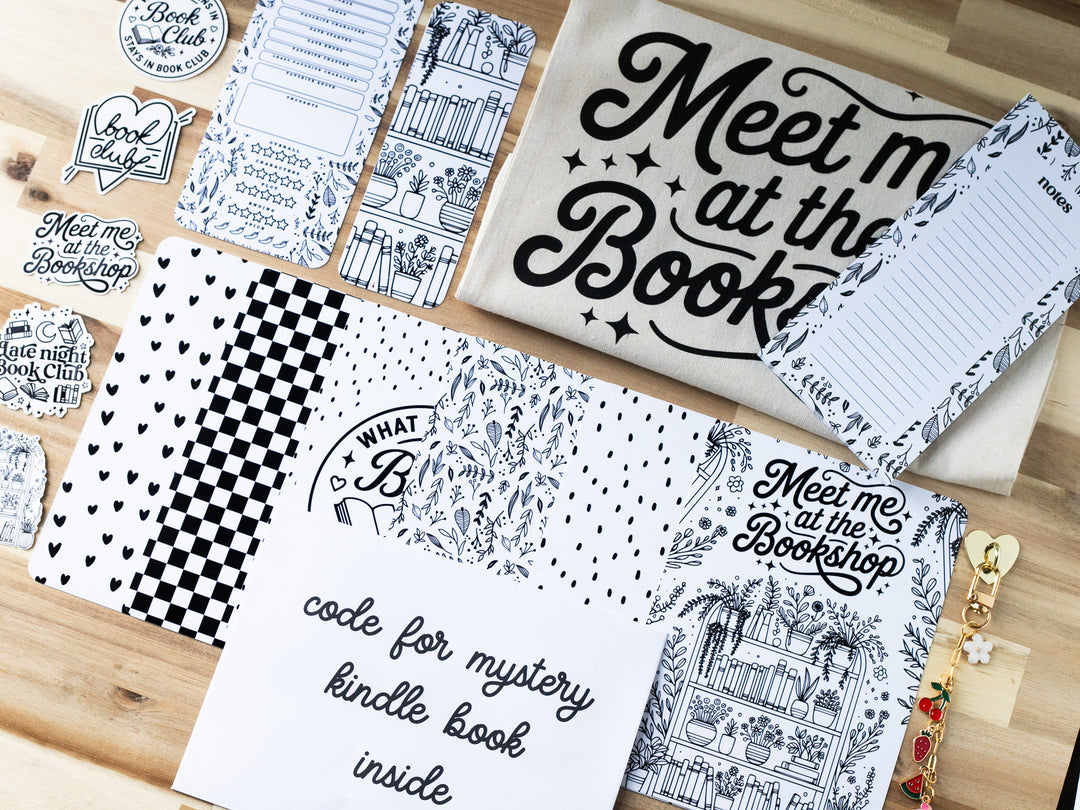 Book
Club
STAYS IN BOOK CLUB
book
club
Meet me
at the
Bookshop
Late night
Book Club
GENRE
FAVORITE CHARACTERS
DATE STARTED
THOUGHTS
OVERALL
Meet me
at the
Book
notes
WHAT
B
Meet me
at the
Bookshop
code for mystery
kindle book
inside